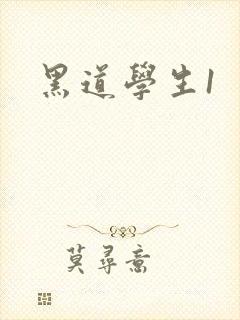 黑道學生1
莫尋意